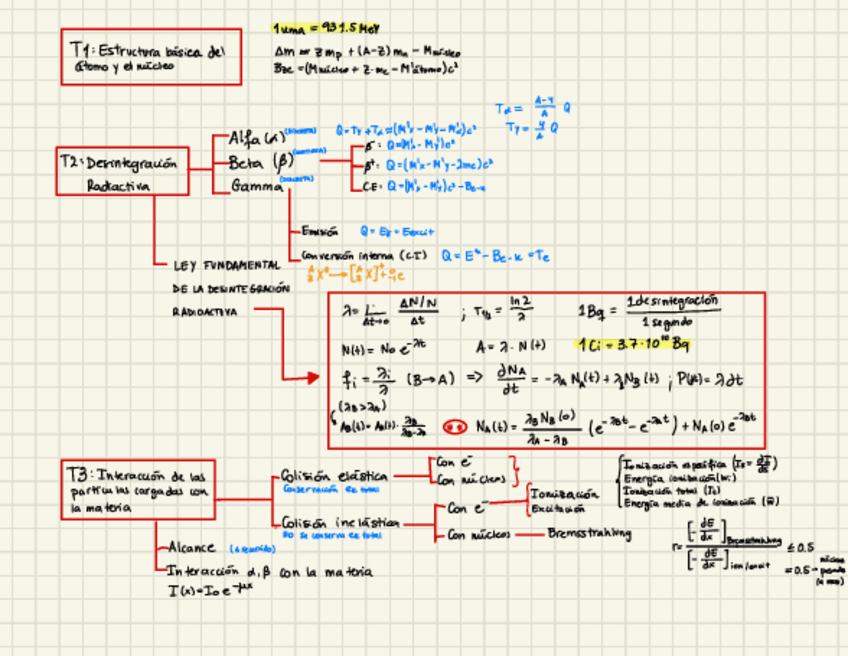 1 uma = 931.5 MeV
T1: Estructura básica del
átomo y el núcleo
Δm = Z mp + (A-Z) mn - Mnúcleo
Bze = (Mnúcleo + Z·me - Mátomo)c²
Tα = A-4/A Q
Ty = 4/A Q
T2: Desintegración
Radiactiva
Alfa (α) (DISCRETO) Q = Ty + Tα = (M'x - M'y - M'α)c²
Beta (β)
Gamma (DISCRETO)
β⁻: Q = (M'x - M'y)c²
β⁺: Q = (M'x - M'y - 2me)c²
C.E: Q = (M'x - M'y)c² - Be-k
Emisión Q = Eγ = Eexcit
Conversión interna (C.I) Q = E* - Be-k = Te
LEY FUNDAMENTAL
DE LA DESINTEGRACIÓN
RADIOACTIVA
λ = Lim Δt→0 ΔN/N / Δt ; T1/2 = ln2/λ 1Bq = 1 desintegración / 1 segundo
N(t) = N₀ e^-λt A = λ · N(t) 1 Ci = 3.7·10¹⁰ Bq
fi = λi/λ (B→A) => dNA/dt = -λA NA(t) + λB NB(t) ; P(dt) = λdt
(λB > λA)
AB(t) = AA(t) · λB/λB-λA NA(t) = λB NB(0) / λA - λB (e^-λBt - e^-λAt) + NA(0) e^-λAt
T3: Interacción de las
partículas cargadas con
la materia
Colisión elástica
Conservación Ec total
Con e⁻
Con núcleos
Colisión inelástica
No se conserva Ec total
Con e⁻
Ionización
Excitación
Con núcleos
Bremsstrahlung
Ionización específica (Is = dI/dx)
Energía ionización (wi)
Ionización total (It)
Energía media de ionización (w̄)
r = [-dE/dx]Bremsstrahlung / [-dE/dx]ion/excit ≤ 0.5
= 0.5 →
Alcance
Interacción α, β con la materia
I(x) = I₀ e^-μx